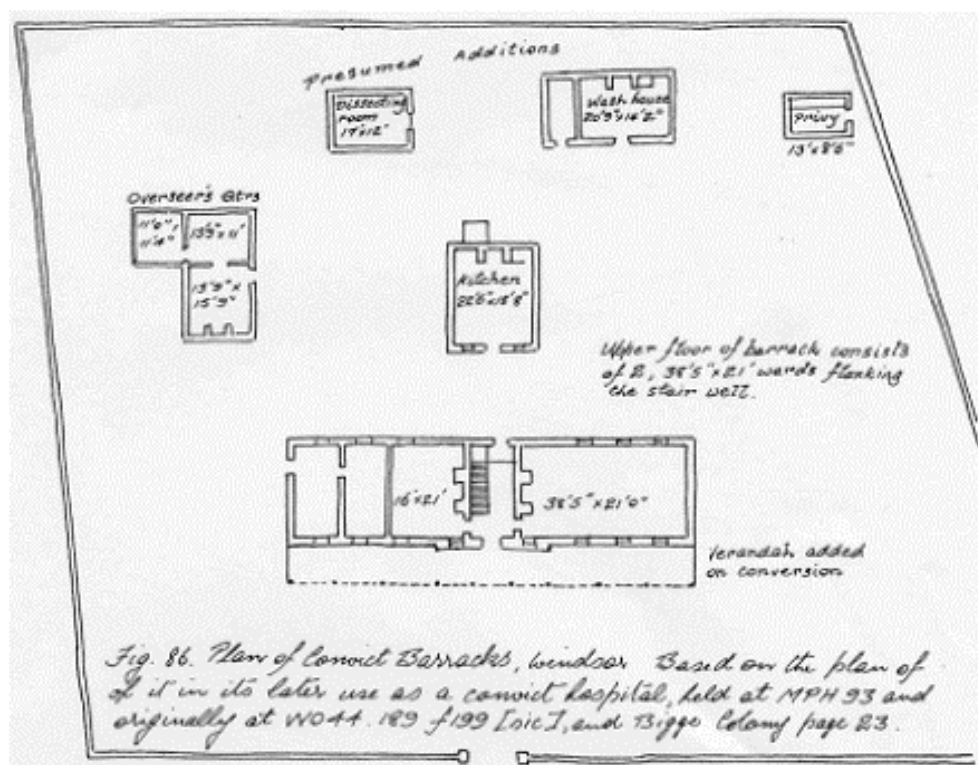 Presumed Additions
Dissecting
room
17'x12'
Wash house
20'9"x14'2"
Privy
13'x8'6"
Overseer's Qtrs
11'0" x
11'4"
13'9" x 11'
13'9" x
15'9"
Kitchen
22'6"x15'8"
Upper floor of barrack consists
of 2, 38'5"x21' wards flanking
the stair well.
16'x21'
38'5"x21'0"
Verandah added
on conversion
Fig. 86. Plan of Convict Barracks, Windsor Based on the plan of
of it in its later use as a convict hospital, held at MPH 93 and
originally at WO44.189 f199 [sic], and Bigge Colony page 23.